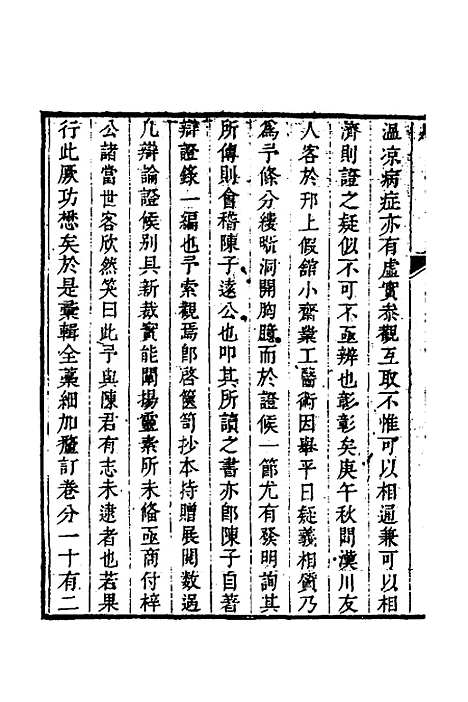 溫凉病症亦有虛實叅觀互取不惟可以相通兼可以相
濟則證之疑似不可不亟辨也彰彰矣庚午秋間漢川友
人客於邗上假舘小齋業工醫術因舉平日疑義相質乃
爲予條分縷晣洞開胸臆而於證候一節尤有發明詢其
所傳則會稽陳子遠公也叩其所讀之書亦卽陳子自著
辯證錄一編也予索觀焉卽啓篋笥抄本持贈展閱數過
凡辯論證候别具新裁實能闡揚靈素所未備亟商付梓
公諸當世客欣然笑曰此予與陳君有志未逮者也若果
行此厥功懋矣於是彙輯全藁細加釐訂卷分一十有二